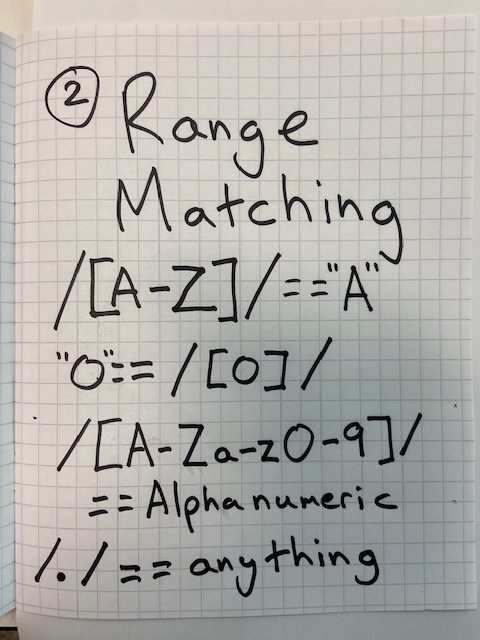 ② Range
Matching
/[A-Z]/=="A"
"O"== /[O]/
/[A-Za-z0-9]/
== Alphanumeric
/./ == anything